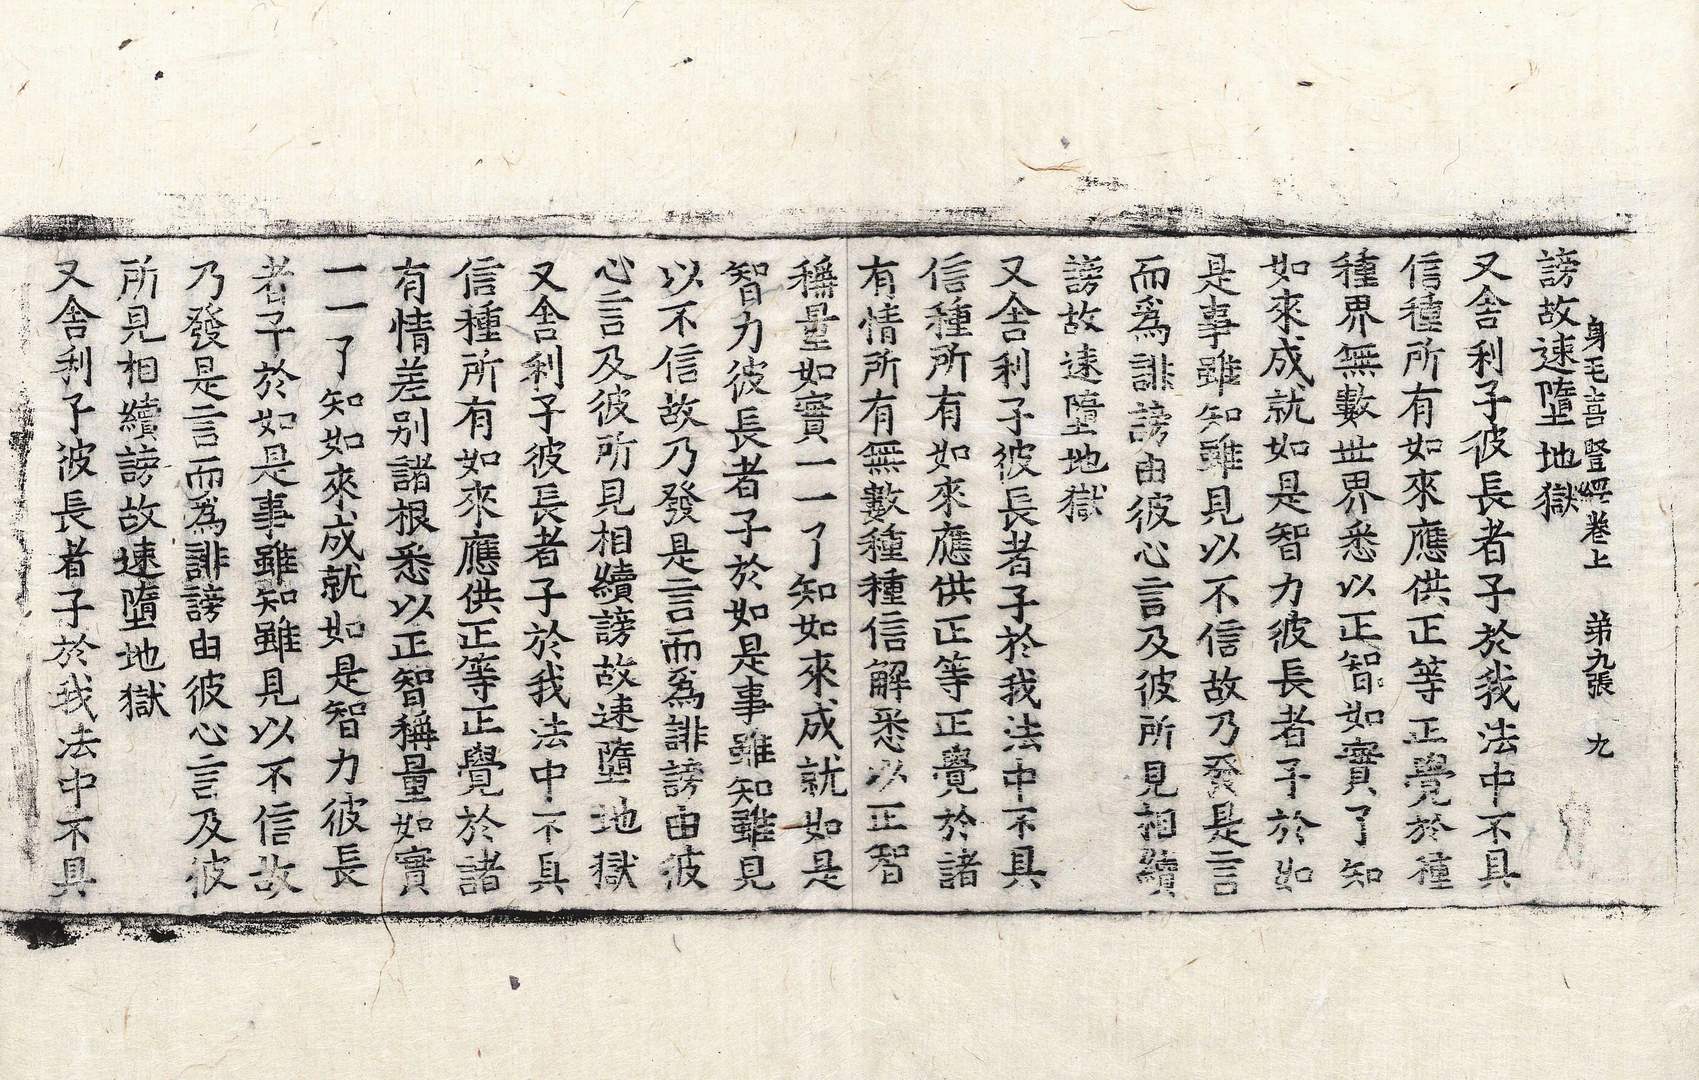 身毛喜豎經卷上 第九張 九
謗故速墮地獄
又舍利子彼長者子於我法中不具
信種所有如來應供正等正覺於種
種界無數世界悉以正智如實了知
如來成就如是智力彼長者子於如
是事雖知雖見以不信故乃發是言
而爲誹謗由彼心言及彼所見相續
謗故速墮地獄
又舍利子彼長者子於我法中不具
信種所有如來應供正等正覺於諸
有情所有無數種種信解悉以正智
稱量如實一一了知如來成就如是
智力彼長者子於如是事雖知雖見
以不信故乃發是言而爲誹謗由彼
心言及彼所見相續謗故速墮地獄
又舍利子彼長者子於我法中不具
信種所有如來應供正等正覺於諸
有情差别諸根悉以正智稱量如實
一一了知如來成就如是智力彼長
者子於如是事雖知雖見以不信故
乃發是言而爲誹謗由彼心言及彼
所見相續謗故速墮地獄
又舍利子彼長者子於我法中不具